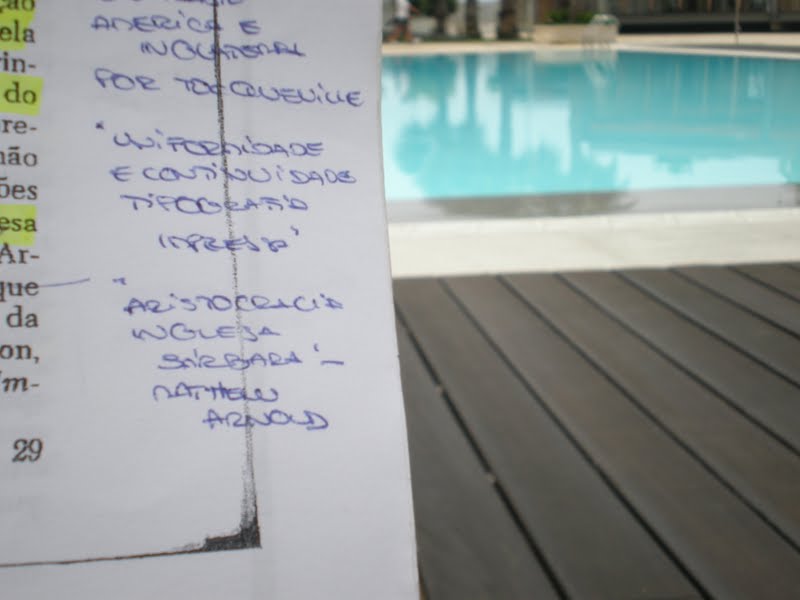 ção
ela
rin-
do
re-
não
ões
esa
Ar-
que
da
on,
m-
29
AMERICA E
INGLATERRA
POR TOCQUEVILLE
"UNIFORMIDADE
E CONTINUIDADE
TIPOGRAFIA
IMPRESA"
"ARISTOCRACIA
INGLESA
BÁRBARA" –
MATHEW
ARNOLD